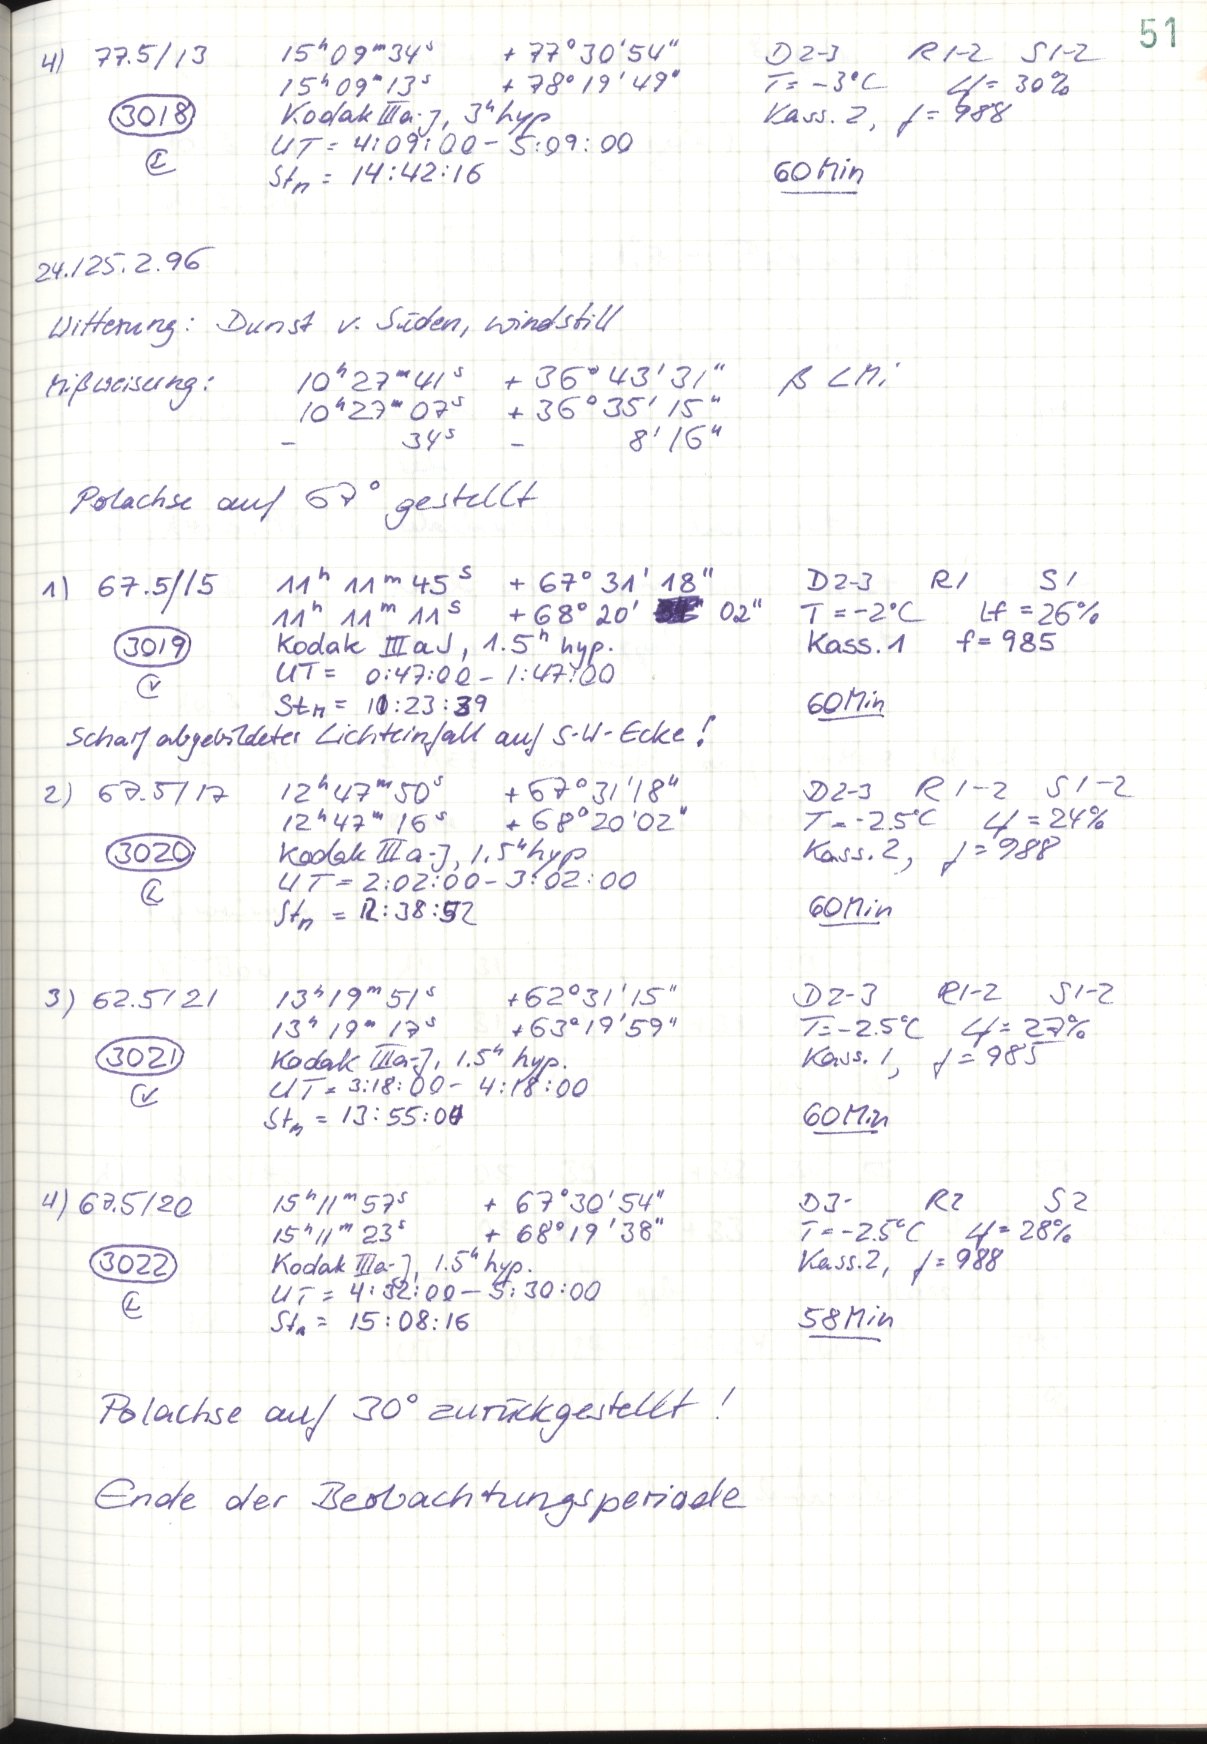 51
4) 77.5/13 15ʰ09ᵐ34ˢ +77°30'54" D2-3 R1-2 S1-2
15ʰ09ᵐ13ˢ +78°19'49" T=-3°C Lf=30%
3018 Kodak IIIa-J, 3ʰ hyp Kass. 2, f=988
UT=4:09:00-5:09:00
Stₙ= 14:42:16 60 Min
24./25.2.96
Witterung: Dunst v. Süden, windstill
Mißweisung: 10ʰ27ᵐ41ˢ +36°43'31" β LMi
10ʰ27ᵐ07ˢ +36°35'15"
- 34ˢ - 8'16"
Polachse auf 67° gestellt
1) 67.5/15 11ʰ 11ᵐ 45ˢ +67°31'18" D2-3 R1 S1
11ʰ 11ᵐ 11ˢ +68°20' 02" T=-2°C Lf=26%
3019 Kodak IIIaJ, 1.5ʰ hyp. Kass.1 f=985
UT= 0:47:00-1:47:00
Stₙ= 11:23:39 60 Min
Scharf abgebildeter Lichteinfall auf S-W-Ecke!
2) 67.5/17 12ʰ47ᵐ50ˢ +67°31'18" D2-3 R1-2 S1-2
12ʰ47ᵐ16ˢ +68°20'02" T=-2.5°C Lf=24%
3020 Kodak IIIa-J, 1.5ʰ hyp Kass. 2, f=988
UT=2:02:00-3:02:00
Stₙ = 12:38:52 60 Min
3) 62.5/21 13ʰ19ᵐ51ˢ +62°31'15" D2-3 R1-2 S1-2
13ʰ19ᵐ17ˢ +63°19'59" T=-2.5°C Lf=27%
3021 Kodak IIIa-J, 1.5ʰ hyp. Kass. 1, f=985
UT=3:18:00-4:18:00
Stₙ = 13:55:04 60 Min
4) 67.5/20 15ʰ11ᵐ57ˢ +67°30'54" D3- R2 S2
15ʰ11ᵐ23ˢ +68°19'38" T=-2.5°C Lf=28%
3022 Kodak IIIa-J, 1.5ʰ hyp. Kass.2, f=988
UT=4:32:00-5:30:00
Stₙ= 15:08:16 58 Min
Polachse auf 30° zurückgestellt!
Ende der Beobachtungsperiode